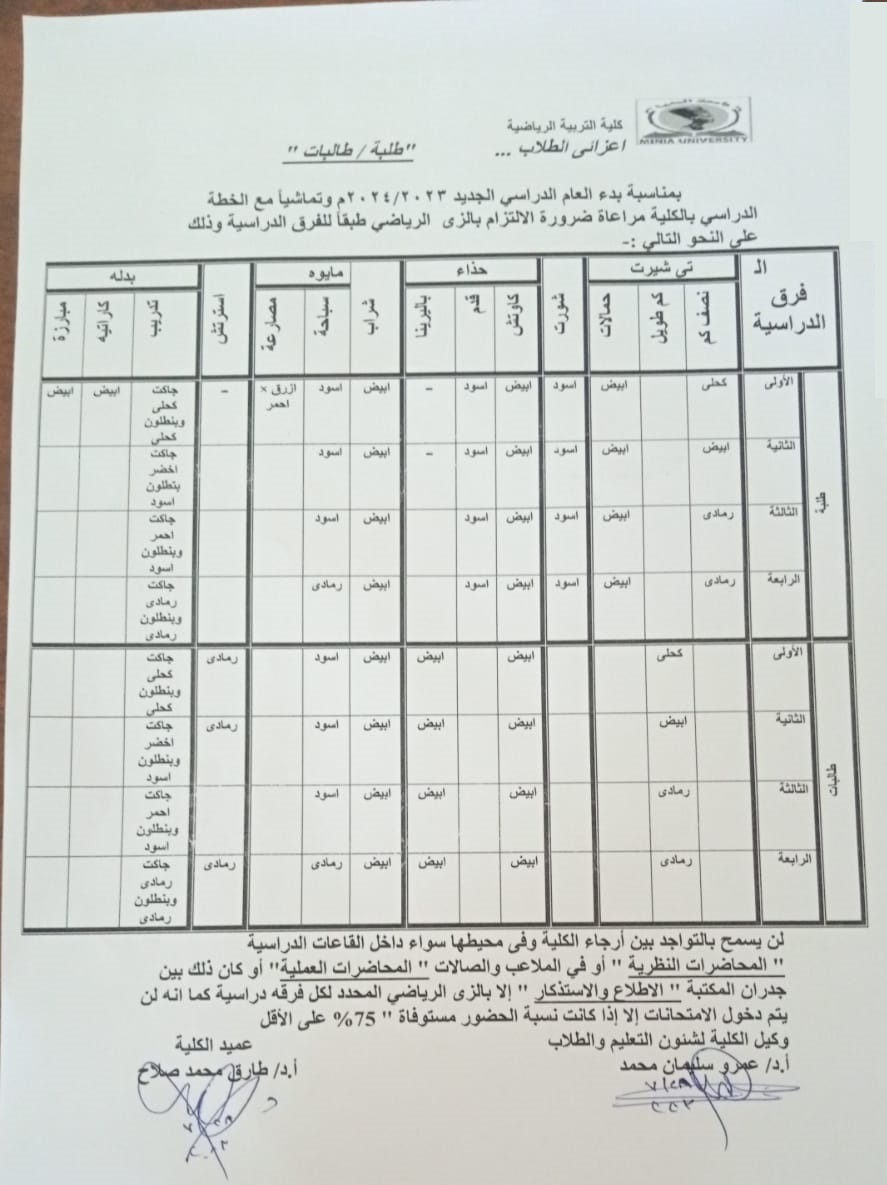 MINIA UNIVERSITY
كلية التربية الرياضية
اعزائى الطلاب ... "طلبة / طالبات "
بمناسبة بدء العام الدراسي الجديد ٢٠٢٤/٢٠٢٣م وتماشياً مع الخطة
الدراسي بالكلية مراعاة ضرورة الالتزام بالزى الرياضي طبقاً للفرق الدراسية وذلك
على النحو التالي :-
الـ فرق الدراسية تي شيرت حذاء مايوه بدله
نصف كم كم طويل حمالات شورت كاوتش قدم باليرينا شراب سباحة مصارعة استرتش تدريب كاراتيه مبارزة
طلبة
الأولى كحلى ابيض اسود ابيض اسود - ابيض اسود ازرق × احمر - جاكت كحلى وبنطلون كحلى ابيض ابيض
الثانية ابيض ابيض اسود ابيض اسود - ابيض اسود جاكت اخضر بنطلون اسود
الثالثة رمادى ابيض اسود ابيض اسود ابيض اسود جاكت احمر وبنطلون اسود
الرابعة رمادى ابيض اسود ابيض اسود ابيض رمادى جاكت رمادى وبنطلون رمادى
طالبات
الأولى كحلى ابيض ابيض ابيض اسود رمادى جاكت كحلى وبنطلون كحلى
الثانية ابيض ابيض ابيض ابيض اسود رمادى جاكت اخضر وبنطلون اسود
الثالثة رمادى ابيض ابيض ابيض اسود جاكت احمر وبنطلون اسود
الرابعة رمادى ابيض ابيض ابيض رمادى رمادى جاكت رمادى وبنطلون رمادى
لن يسمح بالتواجد بين أرجاء الكلية وفى محيطها سواء داخل القاعات الدراسية
" المحاضرات النظرية " أو في الملاعب والصالات " المحاضرات العملية" أو كان ذلك بين
جدران المكتبة " الاطلاع والاستذكار " إلا بالزى الرياضي المحدد لكل فرقه دراسية كما انه لن
يتم دخول الامتحانات إلا إذا كانت نسبة الحضور مستوفاة " 75% على الأقل
وكيل الكلية لشئون التعليم والطلاب عميد الكلية
أ.د/ عمرو سليمان محمد أ.د/ طارق محمد صلاح